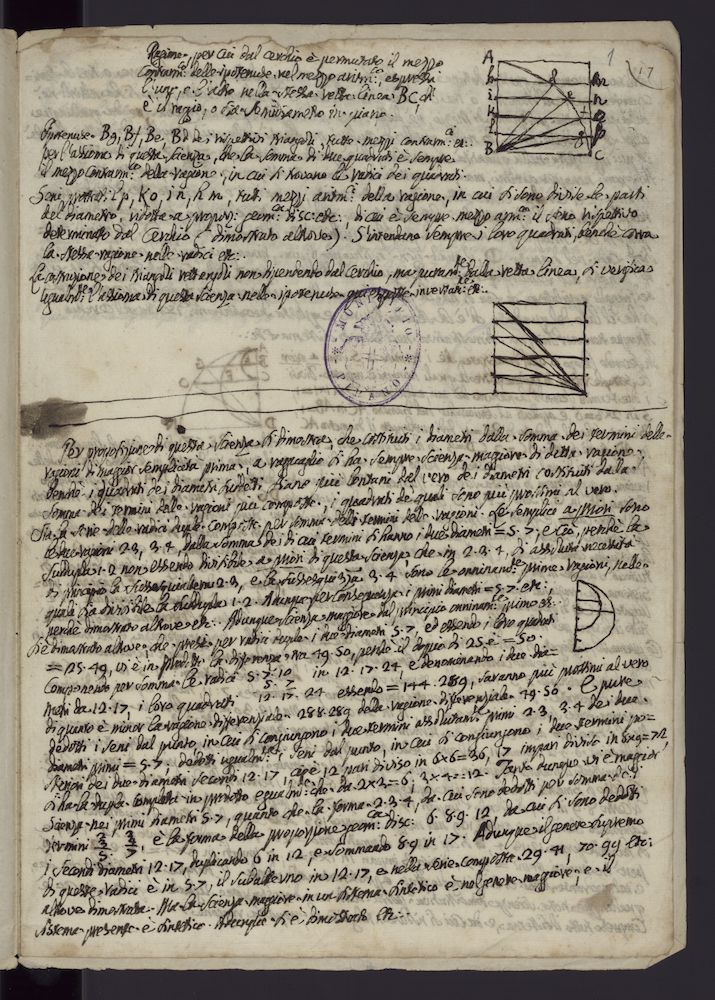 1
17
Ragione, per cui dal cerchio è permutato il mezzo
Contrarm: delle ipotenuse nel mezzo aritm:co, espressi
l'uno, e l'altro nella stessa retta linea BC, ch'
è il ragio, o sia Semidiametro in piano.
A
h
i
B
m
n
o
p
C
Ipotenuse Bg, Bf, Be, Bd de' rispettivi triangoli, tutte mezzi contrarm:ci etc:
per l'assioma di questa scienza, che la somma di due quadrati è sempre
il mezzo contrarm:co della ragione, in cui si trovano le radici dei quadrati.
Seni protratti Lp, Ko, in, hm, tutti mezzi aritm:ci della ragione, in cui si sono divise le parti
del diametro, ridotte a geom:ca disc: etc:, di cui è sempre mezzo arm:co il seno rispettivo
determinato dal Cerchio (è dimostrato altrove). S'intendano sempre i loro quadrati, benchè corra
la stessa ragione nelle radici etc:
La costruzione dei triangoli rettangoli non dipendente dal cerchio, ma dalla retta linea, si verifica
l'assioma di questa scienza nelle ipotenuse etc:
MUNICIPIO
PIRANO
Per proposizione di questa scienza si dimostra, che costituiti i diametri dalla somma dei termini delle
ragioni di maggior semplicità prima, a ragguaglio si ha sempre scienza maggiore di detta ragione,
benchè i quadrati dei diametri siano più lontani dal vero de i diametri costituiti dalla
somma dei termini delle ragioni più composte, i quadrati de quali sono più prossimi al vero.
Sia la serie delle radici duple composte per somma delli termini delle ragioni. Le semplici a priori sono
le due ragioni 2.3, 3.4, dalla somma dei di cui termini si hanno i due diametri = 5.7, e ciò, perchè la
sudupla 1.2 non essendo divisibile a priori di questa scienza che in 2.3.4, di assoluta necessità
di principio la Sesquialtera 2.3, e la Sesquiterza 3.4 sono le prime ragioni, nelle
quali sia divisibile la sudupla 1.2. Adunque per conseguenza i primi diametri = 5.7 etc:,
perchè dimostrato altrove etc: Adunque scienza maggiore dal principio primo etc:
Si è dimostrato altrove, che presi per radici duple i due diametri 5.7, ed essendo i loro quadrati
= 25.49, vi è in prodotti la differenza tra 49.50, perchè il doppio di 25 è = 50.
Componendo per somma le radici 5.7.10 / 5.7 / 12.17 in 12.17.24, e denominando i due dia-
metri da 12.17, i loro quadrati 12.17.24 essendo = 144.289, saranno più prossimi al vero
di quanto è minor la ragione differenziale 288.289 della ragione differenziale 49.50. E pure
dedotti i seni dal punto, in cui si congiungono i due termini primi 2.3, 3.4 de i due
diametri primi = 5.7, dedotti i seni dal punto, in cui si congiungono i due termini
dei due diametri secondi 12.17, cioè 12 pari diviso in 6x6=36, 17 impari diviso in 8x9=72
si ha la dupla composta in prodotto che da 2x2=4, 3x4=12. Tanto dunque vi è maggior
scienza nei primi diametri 5.7, quanto che la forma 2.3.4, da cui sono dedotti per somma de i
termini 2 3 / 3 4 / 5 7, è la forma della proporzione geom:ca disc: 6 8.9 12 da cui si sono dedotti
i secondi diametri 12.17, duplicando 6 in 12, e sommando 8.9 in 17. Adunque il genere supremo
di queste radici è in 5.7, il subalterno in 12.17, e nella serie composta 29.41, 70.99 etc:
altrove dimostrata. Ma la scienza maggiore in un sistema sintetico è nel genere maggiore, e il
sistema presente è sintetico. Adunque si è dimostrato etc: